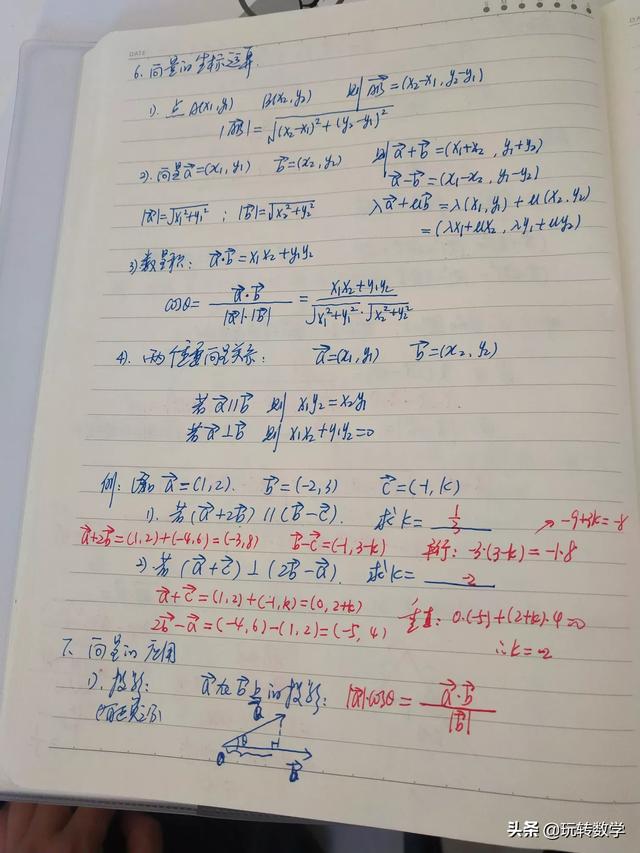 DATE
6. 向量的坐标运算.
1). 点 A(x₁,y₁) B(x₂,y₂) 则 AB→=(x₂-x₁, y₂-y₁)
|AB→|=√((x₂-x₁)²+(y₂-y₁)²)
2). 向量a→=(x₁,y₁) b→=(x₂,y₂) 则 a→+b→=(x₁+x₂, y₁+y₂)
a→-b→=(x₁-x₂, y₁-y₂)
|a→|=√(x₁²+y₁²) ; |b→|=√(x₂²+y₂²) λa→+μb→=λ(x₁,y₁)+μ(x₂,y₂)
=(λx₁+μx₂, λy₁+μy₂)
3) 数量积: a→·b→=x₁x₂+y₁y₂
cosθ= a→·b→ / |a→|·|b→| = x₁x₂+y₁y₂ / √(x₁²+y₁²)·√(x₂²+y₂²)
4). 两个位置向量关系: a→=(x₁,y₁) b→=(x₂,y₂)
若 a→∥b→ 则 x₁y₂=x₂y₁
若 a→⊥b→ 则 x₁x₂+y₁y₂=0
例: a→=(1,2). b→=(-2,3) c→=(-1,k)
1). 若(a→+2b→)∥(b→-c→). 求k= 1/3 → -9+3k=-8
a→+2b→=(1,2)+(-4,6)=(-3,8) b→-c→=(-1,3-k) 平行: -3·(3-k)=-1·8
2) 若(a→+c→)⊥(2b→-a→). 求k= -2
a→+c→=(1,2)+(-1,k)=(0,2+k) 垂直: 0·(-5)+(2+k)·4=0
2b→-a→=(-4,6)-(1,2)=(-5,4) ∴k=-2
7. 向量的应用
1). 投影: a→在b→上的投影: |a→|·cosθ= a→·b→ / |b→|
a→
θ
b→
头条 @玩转数学